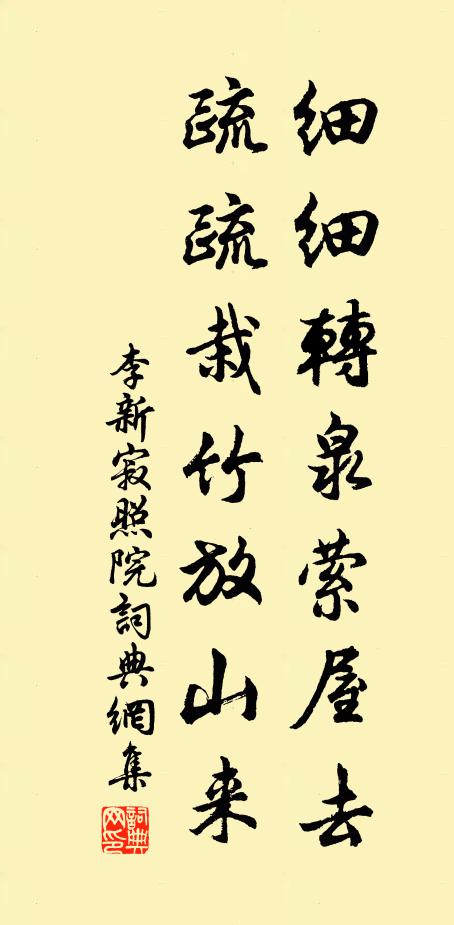 細細轉泉縈屋去
疏疏栽竹放山来
李新寂照院詞典網集
詞典网印